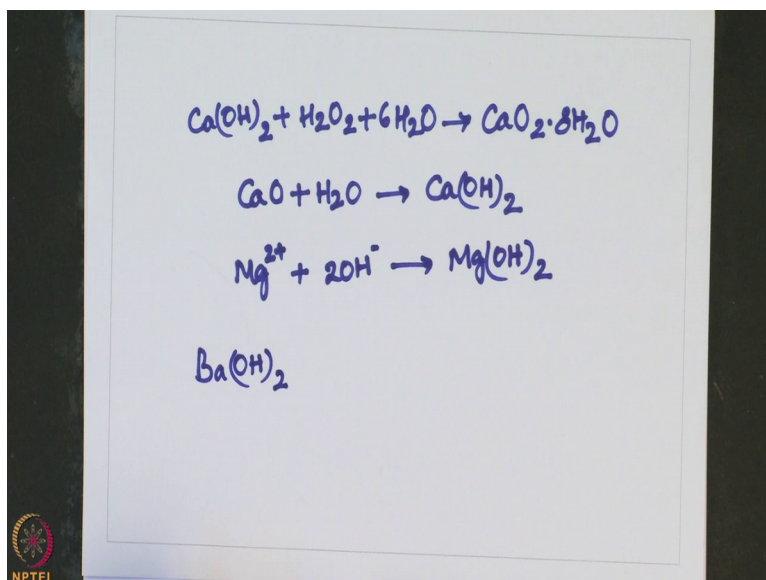 Ca(OH)₂ + H₂O₂ + 6H₂O → CaO₂·8H₂O
CaO + H₂O → Ca(OH)₂
Mg²⁺ + 2OH⁻ → Mg(OH)₂
Ba(OH)₂
NPTEL